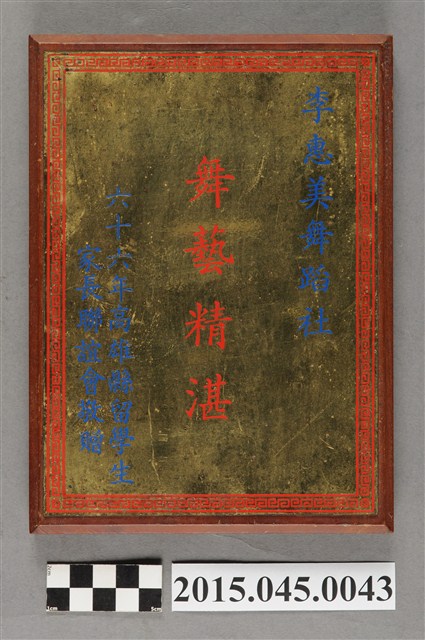 李惠美舞蹈社
舞藝精湛
六十六年高雄縣留學生
家長聯誼會敬贈
2015.045.0043
1cm
5cm